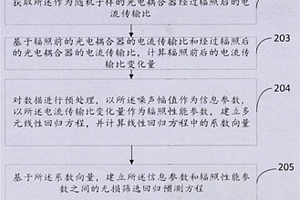 获取所述作为随机子样的光电耦合器经过辐照后的电
流传输比
203
基于辐照前的光电耦合器的电流传输比和经过辐照后
的光电耦合器的电流传输比，计算辐照前后的电流传
输比变化量
204
对数据进行预处理，以所述噪声幅值作为信息参数，
以所述电流传输比变化量作为辐照性能参数，建立多
元线性回归方程，并计算线性回归方程中的系数向量
205
基于所述系数向量，建立所述信息参数和辐照性能参
数之间的无损筛选回归预测方程